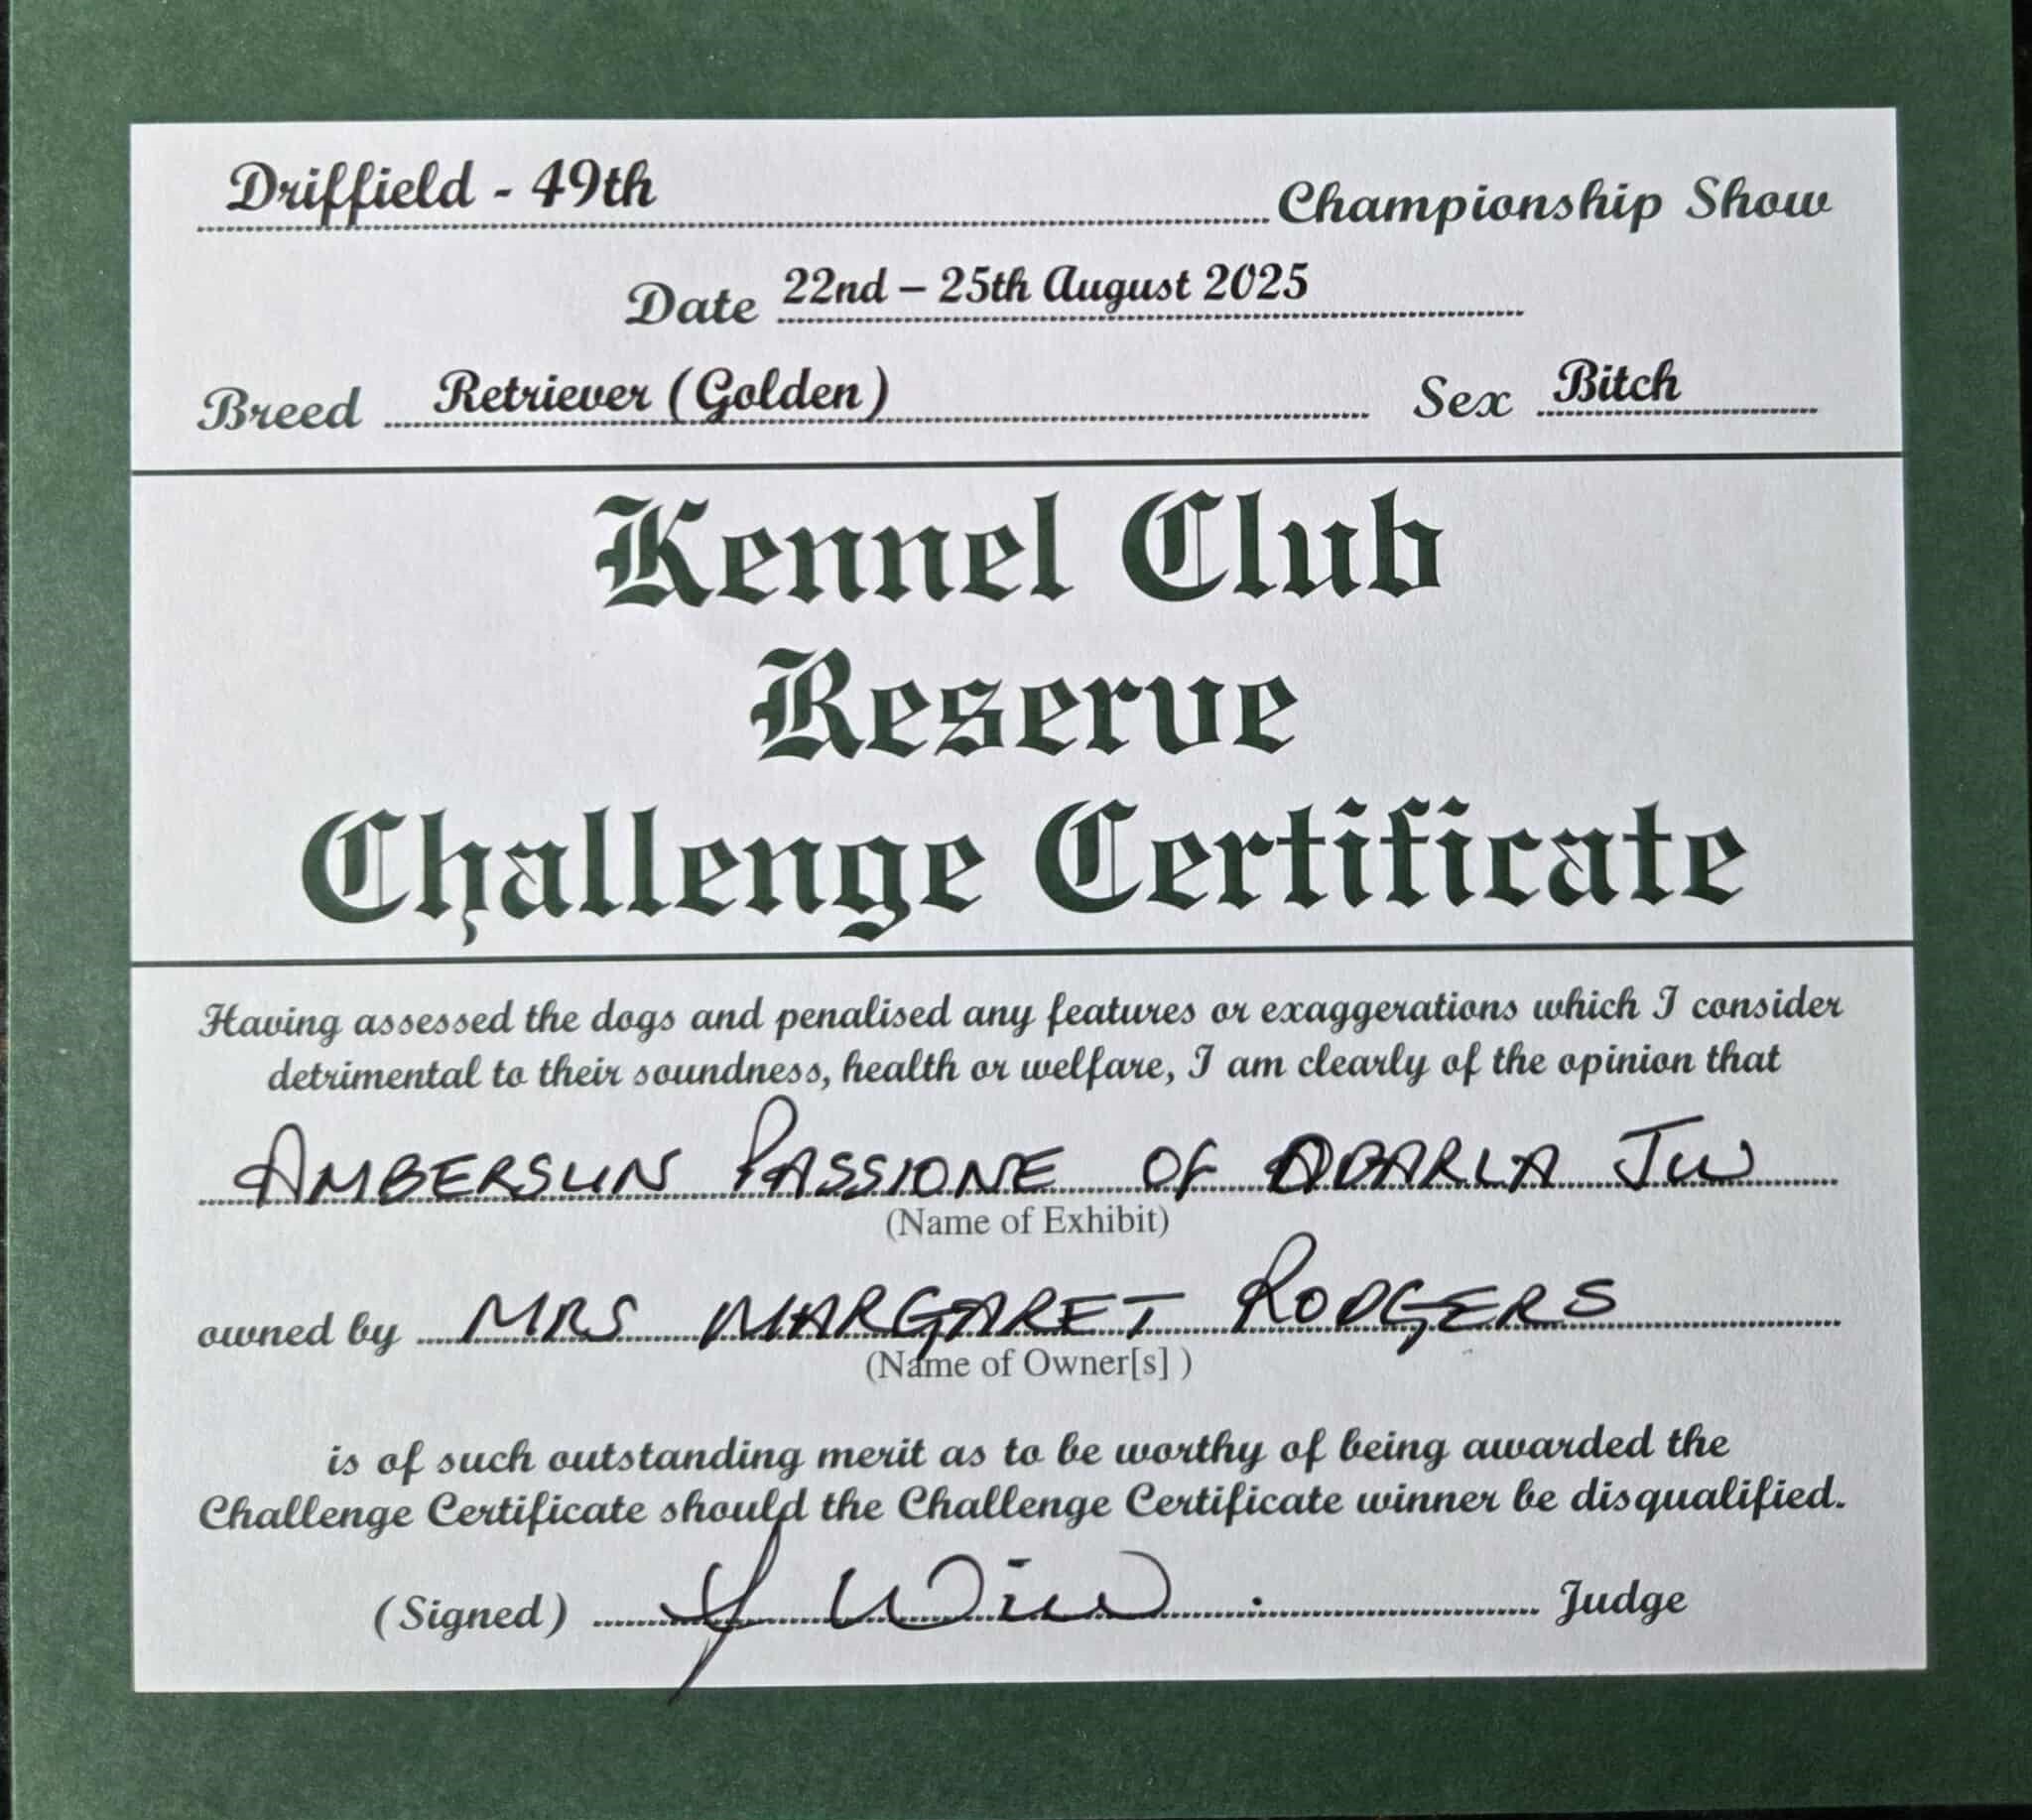 Driffield - 49th Championship Show
Date 22nd – 25th August 2025
Breed Retriever (Golden) Sex Bitch
Kennel Club
Reserve
Challenge Certificate
Having assessed the dogs and penalised any features or exaggerations which I consider
detrimental to their soundness, health or welfare, I am clearly of the opinion that
AMBERSUN PASSIONE OF ABARLA JW
(Name of Exhibit)
owned by MRS MARGARET RODGERS
(Name of Owner[s] )
is of such outstanding merit as to be worthy of being awarded the
Challenge Certificate should the Challenge Certificate winner be disqualified.
(Signed) Judge